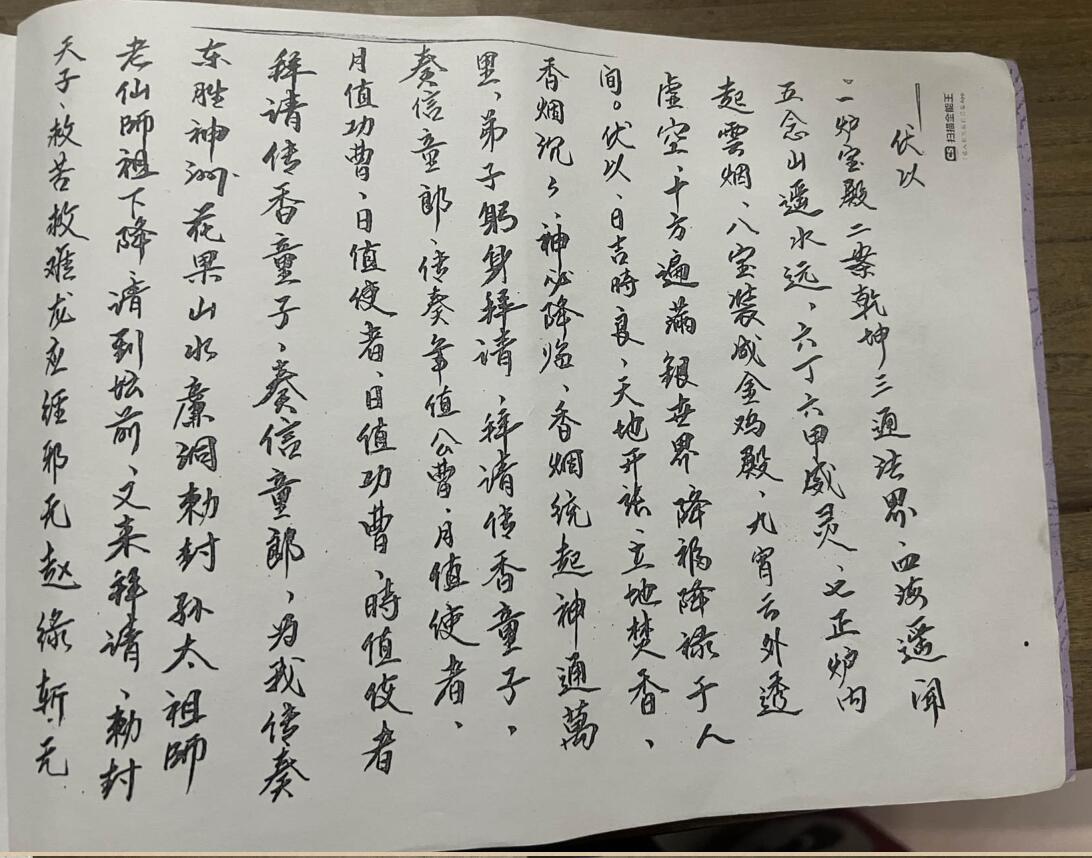 CS 扫描全能王
伏以
一炉宝殿二案乾坤三通法界、四海遥闻
五念山遥水远、六丁六甲威灵、七正炉内
起雲烟、八宝装成金鸡殿、九宵云外透
虚空、十方遍满銀世界降福降禄于人
间。伏以、日吉時良、天地开张、立地焚香、
香烟沉々、神必降临、香烟统起神通萬
里、弟子躬身拜请、拜请传香童子、
奏信童郎、传奏年值公曹、月值使者、
月值功曹、日值使者、日值功曹、時值使者
拜请传香童子、奏信童郎、为我传奏
东胜神洲花果山水廉洞勅封孙太祖師
老仙師祖下降請到坛前、又来拜请、勅封
天子、救苦救难龙应经邪无赵缘斩无